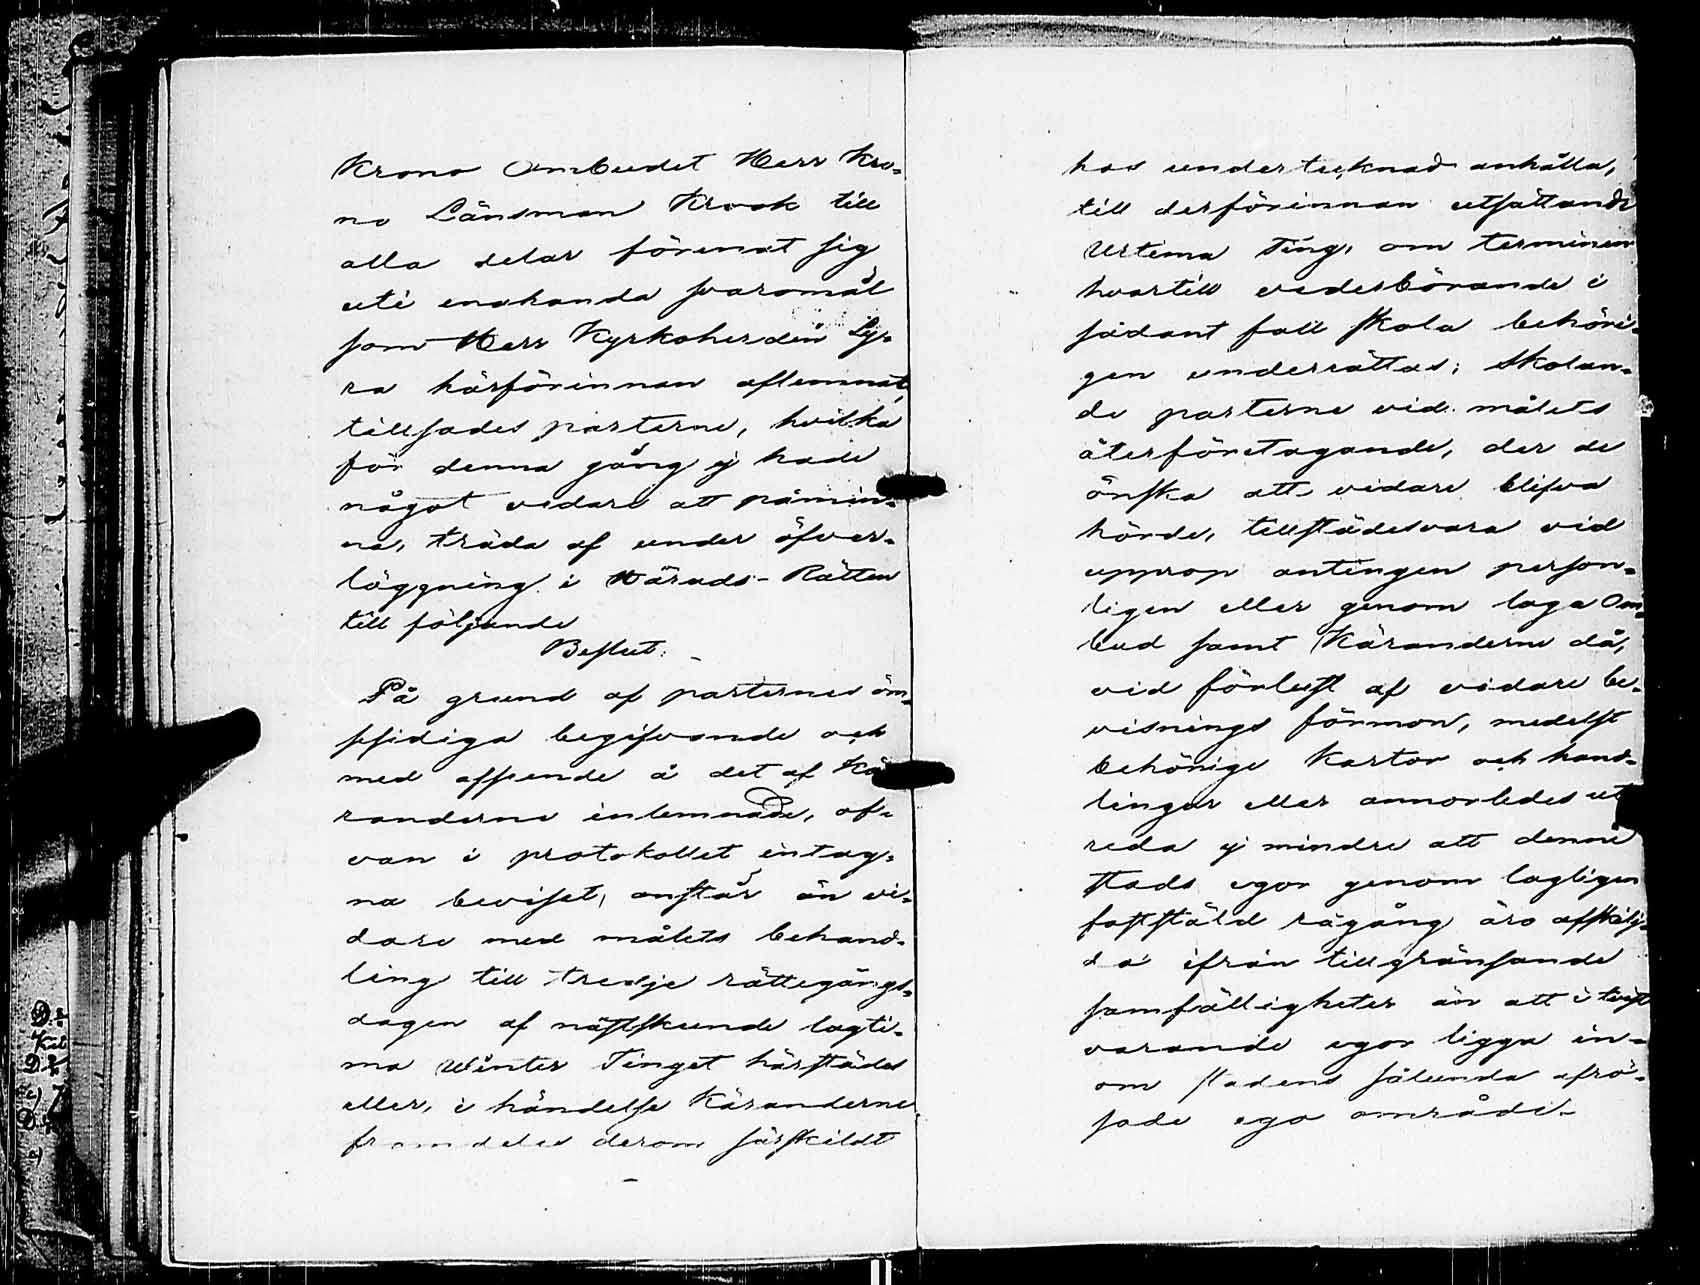 Krono Ombudet Herr Kro-
no Länsman Krook till
alla delar förenat sig
uti enahanda svaromål
som Herr Kyrkoherden Ly-
ra härförinnan aflemnat,
tillsades parterne, hvilka
för denna gång ej hade
något vidare att påmin-
na, träda af under öfver-
läggning i Härads-Rätten
till följande
Beslut.
På grund af parternes öm-
ssidiga begifvande och
med afseende å det af Kä-
randerne inlemnade, of-
van i protokollet intag-
na beviset, anstår än vi-
dare med målets behand-
ling till tredje rättegångs-
dagen af nästskunde lagti-
ma Winter Tinget härstädes
eller, i händelse Käranderne
framdeles derom särskildt
hos undertecknad anhålla,
till derförinnan utsättande
Urtima Ting, om terminen
hvartill vederbörande i
sådant fall skola behöri-
gen underrättas; Skolan-
de parterne vid målets
återföretagande, der de
önska att vidare blifva
hörde, tillstädesvara vid
upprop antingen person-
ligen eller genom laga Om-
bud samt Käranderne då,
vid förlust af vidare be-
visnings förmon, medelst
behörige Kartor och hand-
lingar eller annorledes ut-
reda ej mindre att denne
stads egor genom lagligen
fastställd rågång äro afskilj-
da ifrån tillgränsande
samfälligheter än att i tvist
varande egor ligga in-
om stadens sålunda afrö-
sade ego område.